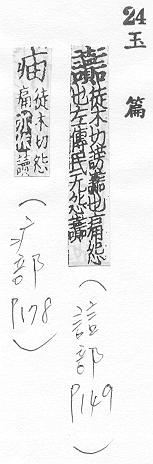 24
玉篇
讟
徒木切讟也痛怨
也左傳民无怨讟
（誩部
P149）
徒木切怨
痛也
（疒部
P178）